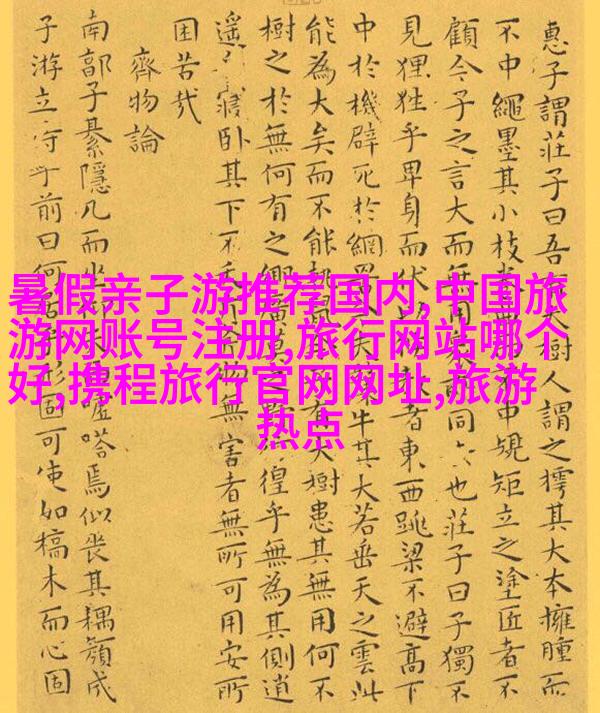 惠子謂莊子曰吾大樹人謂之樗其大本擁腫而
不中繩墨其小枝中規矩立之塗匠者不
顧今子之言大而無同也莊子曰子獨不
見狸狌乎卑身而伏者東西跳梁不避高下
中於機辟死於網牛其大若垂天之雲此
能為大矣而不能執鼠大樹患其無用何不
樹之於無何有之鄉徨乎無為其側逍
遙寢臥其下不物無害者無所可用安所
困苦哉
齊物論
南郭子綦隱几而坐噓嗒焉似喪其耦顏成
子游立侍乎前曰何居形固可使如槁木而心固
暑假亲子游推荐国内,中国旅
游网账号注册,旅行网站哪个
好,携程旅行官网网址,旅游
热点